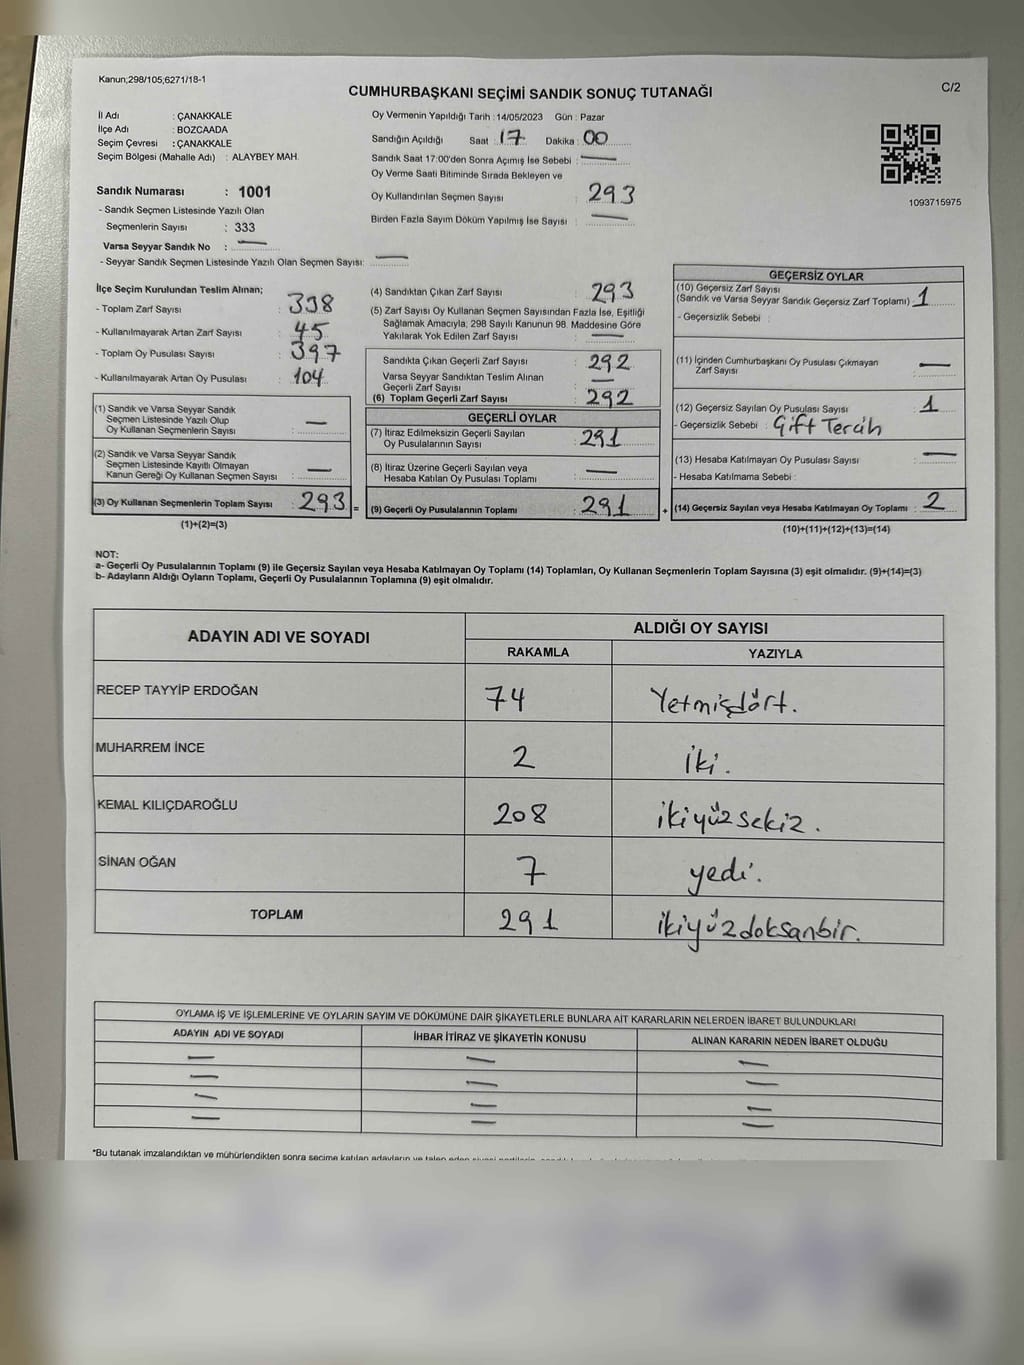 Kanun;298/105,6271/18-1
C/2
CUMHURBAŞKANI SEÇİMİ SANDIK SONUÇ TUTANAĞI
İl Adı : ÇANAKKALE
İlçe Adı : BOZCAADA
Seçim Çevresi : ÇANAKKALE
Seçim Bölgesi (Mahalle Adı) : ALAYBEY MAH.
Sandık Numarası : 1001
- Sandık Seçmen Listesinde Yazılı Olan
Seçmenlerin Sayısı : 333
Varsa Seyyar Sandık No : —
- Seyyar Sandık Seçmen Listesinde Yazılı Olan Seçmen Sayısı: —
Oy Vermenin Yapıldığı Tarih : 14/05/2023 Gün : Pazar
Sandığın Açıldığı Saat : 17 Dakika : 00
Sandık Saat 17:00'den Sonra Açımış İse Sebebi : —
Oy Verme Saati Bitiminde Sırada Bekleyen ve
Oy Kullandırılan Seçmen Sayısı : 293
Birden Fazla Sayım Döküm Yapılmış İse Sayısı : —
1093715975
İlçe Seçim Kurulundan Teslim Alınan;
- Toplam Zarf Sayısı : 338
- Kullanılmayarak Artan Zarf Sayısı : 45
- Toplam Oy Pusulası Sayısı : 397
- Kullanılmayarak Artan Oy Pusulası : 104
(1) Sandık ve Varsa Seyyar Sandık
Seçmen Listesinde Yazılı Olup
Oy Kullanan Seçmenlerin Sayısı : —
(2) Sandık ve Varsa Seyyar Sandık
Seçmen Listesinde Kayıtlı Olmayan
Kanun Gereği Oy Kullanan Seçmen Sayısı : —
(3) Oy Kullanan Seçmenlerin Toplam Sayısı : 293 =
(1)+(2)=(3)
(4) Sandıktan Çıkan Zarf Sayısı : 293
(5) Zarf Sayısı Oy Kullanan Seçmen Sayısından Fazla İse, Eşitliği
Sağlamak Amacıyla, 298 Sayılı Kanunun 98. Maddesine Göre
Yakılarak Yok Edilen Zarf Sayısı : —
Sandıkta Çıkan Geçerli Zarf Sayısı : 292
Varsa Seyyar Sandıktan Teslim Alınan
Geçerli Zarf Sayısı : —
(6) Toplam Geçerli Zarf Sayısı : 292
GEÇERLİ OYLAR
(7) İtiraz Edilmeksizin Geçerli Sayılan
Oy Pusulalarının Sayısı : 291
(8) İtiraz Üzerine Geçerli Sayılan veya
Hesaba Katılan Oy Pusulası Toplamı : —
(9) Geçerli Oy Pusulalarının Toplamı : 291 +
GEÇERSİZ OYLAR
(10) Geçersiz Zarf Sayısı
(Sandık ve Varsa Seyyar Sandık Geçersiz Zarf Toplamı) : 1
- Geçersizlik Sebebi :
(11) İçinden Cumhurbaşkanı Oy Pusulası Çıkmayan
Zarf Sayısı : —
(12) Geçersiz Sayılan Oy Pusulası Sayısı : 1
- Geçersizlik Sebebi : Çift Tercih
(13) Hesaba Katılmayan Oy Pusulası Sayısı : —
- Hesaba Katılmama Sebebi :
(14) Geçersiz Sayılan veya Hesaba Katılmayan Oy Toplamı : 2
(10)+(11)+(12)+(13)=(14)
NOT:
a- Geçerli Oy Pusulalarının Toplamı (9) ile Geçersiz Sayılan veya Hesaba Katılmayan Oy Toplamı (14) Toplamları, Oy Kullanan Seçmenlerin Toplam Sayısına (3) eşit olmalıdır. (9)+(14)=(3)
b- Adayların Aldığı Oyların Toplamı, Geçerli Oy Pusulalarının Toplamına (9) eşit olmalıdır.
ADAYIN ADI VE SOYADI
ALDIĞI OY SAYISI
RAKAMLA YAZIYLA
RECEP TAYYİP ERDOĞAN 74 Yetmişdört.
MUHARREM İNCE 2 iki.
KEMAL KILIÇDAROĞLU 208 ikiyüzsekiz.
SİNAN OĞAN 7 yedi.
TOPLAM 291 ikiyüzdoksanbir.
OYLAMA İŞ VE İŞLEMLERİNE VE OYLARIN SAYIM VE DÖKÜMÜNE DAİR ŞİKAYETLERLE BUNLARA AİT KARARLARIN NELERDEN İBARET BULUNDUKLARI
ADAYIN ADI VE SOYADI İHBAR İTİRAZ VE ŞİKAYETİN KONUSU ALINAN KARARIN NEDEN İBARET OLDUĞU
— — —
— — —
— — —
— — —
*Bu tutanak imzalandıktan ve mühürlendikten sonra seçime katılan adayların ve talep eden